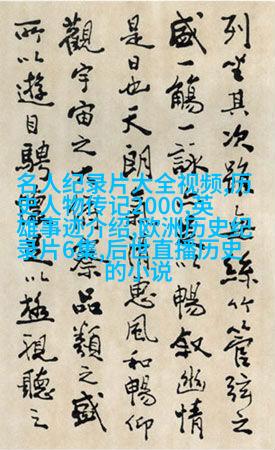 列坐其次雖無絲竹管弦之
盛一觴一詠以暢敘幽情
是日也天朗氣惠風和暢仰
觀宇宙之察品類之盛
所以遊目騁以極視聽之
名人纪录片大全视频,历
史人物传记2000,英
雄事迹介绍,欧洲历史纪
录片6集,后世直播历史
的小说